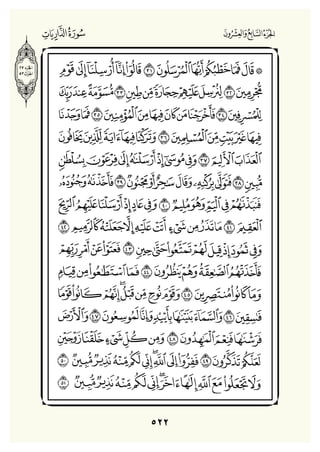 الجُزْءُ السَّابِعُ وَالعِشْرُونَ
سُورَةُ الذَّارِيَاتِ
۞ قَالَ فَمَا خَطْبُكُمْ أَيُّهَا ٱلْمُرْسَلُونَ ٣١ قَالُوٓا۟ إِنَّآ أُرْسِلْنَآ إِلَىٰ قَوْمٍ
مُّجْرِمِينَ ٣٢ لِنُرْسِلَ عَلَيْهِمْ حِجَارَةً مِّن طِينٍ ٣٣ مُّسَوَّمَةً عِندَ رَبِّكَ
لِلْمُسْرِفِينَ ٣٤ فَأَخْرَجْنَا مَن كَانَ فِيهَا مِنَ ٱلْمُؤْمِنِينَ ٣٥ فَمَا وَجَدْنَا
فِيهَا غَيْرَ بَيْتٍ مِّنَ ٱلْمُسْلِمِينَ ٣٦ وَتَرَكْنَا فِيهَآ ءَايَةً لِّلَّذِينَ يَخَافُونَ
ٱلْعَذَابَ ٱلْأَلِيمَ ٣٧ وَفِى مُوسَىٰٓ إِذْ أَرْسَلْنَٰهُ إِلَىٰ فِرْعَوْنَ بِسُلْطَٰنٍ
مُّبِينٍ ٣٨ فَتَوَلَّىٰ بِرُكْنِهِۦ وَقَالَ سَٰحِرٌ أَوْ مَجْنُونٌ ٣٩ فَأَخَذْنَٰهُ وَجُنُودَهُۥ
فَنَبَذْنَٰهُمْ فِى ٱلْيَمِّ وَهُوَ مُلِيمٌ ٤٠ وَفِى عَادٍ إِذْ أَرْسَلْنَا عَلَيْهِمُ ٱلرِّيحَ
ٱلْعَقِيمَ ٤١ مَا تَذَرُ مِن شَىْءٍ أَتَتْ عَلَيْهِ إِلَّا جَعَلَتْهُ كَٱلرَّمِيمِ ٤٢
وَفِى ثَمُودَ إِذْ قِيلَ لَهُمْ تَمَتَّعُوا۟ حَتَّىٰ حِينٍ ٤٣ فَعَتَوْا۟ عَنْ أَمْرِ رَبِّهِمْ
فَأَخَذَتْهُمُ ٱلصَّٰعِقَةُ وَهُمْ يَنظُرُونَ ٤٤ فَمَا ٱسْتَطَٰعُوا۟ مِن قِيَامٍ
وَمَا كَانُوا۟ مُنتَصِرِينَ ٤٥ وَقَوْمَ نُوحٍ مِّن قَبْلُ إِنَّهُمْ كَانُوا۟ قَوْمًا
فَٰسِقِينَ ٤٦ وَٱلسَّمَآءَ بَنَيْنَٰهَا بِأَيْي۟دٍ وَإِنَّا لَمُوسِعُونَ ٤٧ وَٱلْأَرْضَ
فَرَشْنَٰهَا فَنِعْمَ ٱلْمَٰهِدُونَ ٤٨ وَمِن كُلِّ شَىْءٍ خَلَقْنَا زَوْجَيْنِ
لَعَلَّكُمْ تَذَكَّرُونَ ٤٩ فَفِرُّوٓا۟ إِلَى ٱللَّهِ إِنِّى لَكُم مِّنْهُ نَذِيرٌ مُّبِينٌ ٥٠
وَلَا تَجْعَلُوا۟ مَعَ ٱللَّهِ إِلَٰهًا ءَاخَرَ إِنِّى لَكُم مِّنْهُ نَذِيرٌ مُّبِينٌ ٥١
٥٢٢